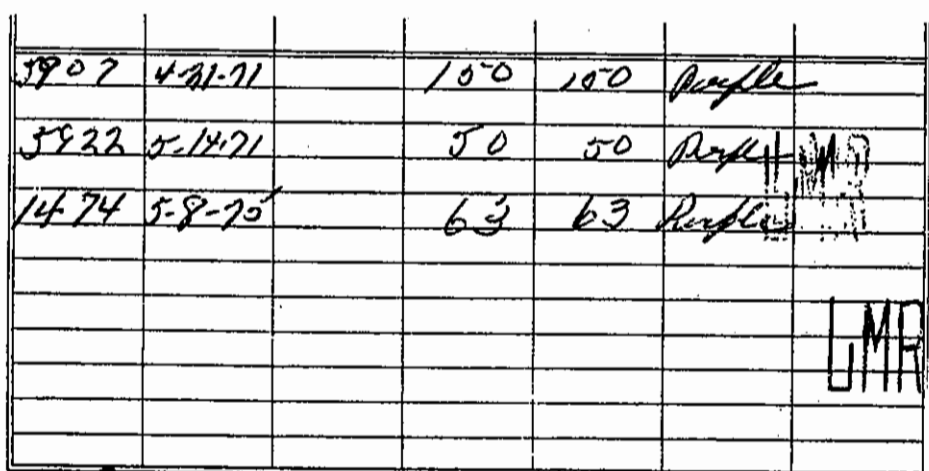 5907 4-21-71 150 150 Purple
5922 5-14-71 50 50 Purple
LMR
1474 5-8-75 63 63 Purple
LMR